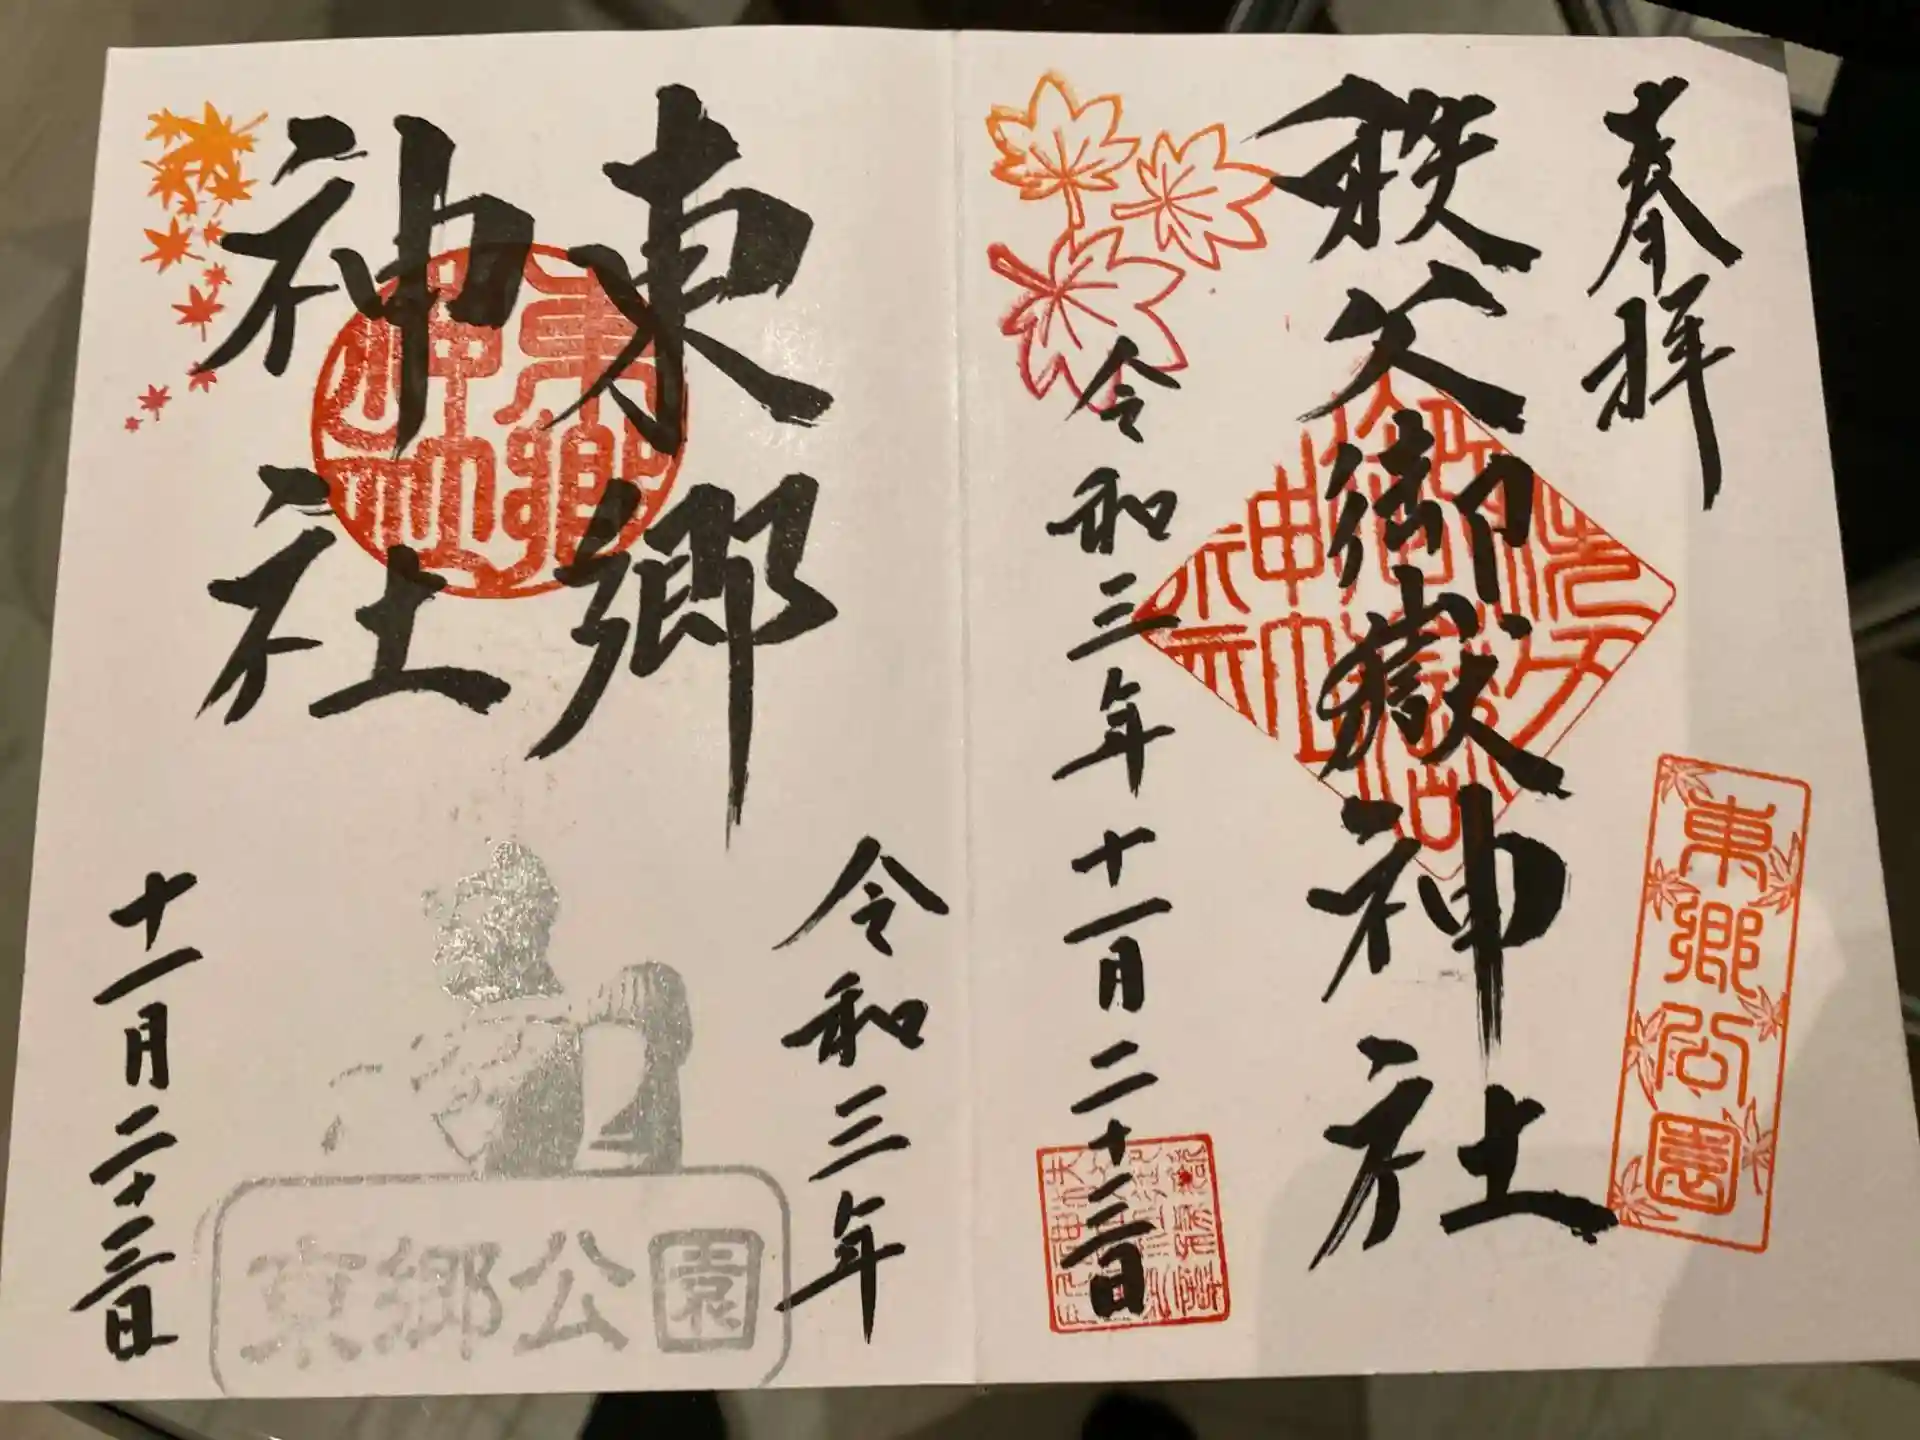 奉拝
秩父御嶽神社
令和三年十一月二十三日
東郷公園
東郷
神社
東郷
神社
令和三年
十一月二十三日
東郷公園